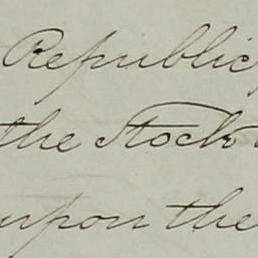 Republic,
the Stock
upon the